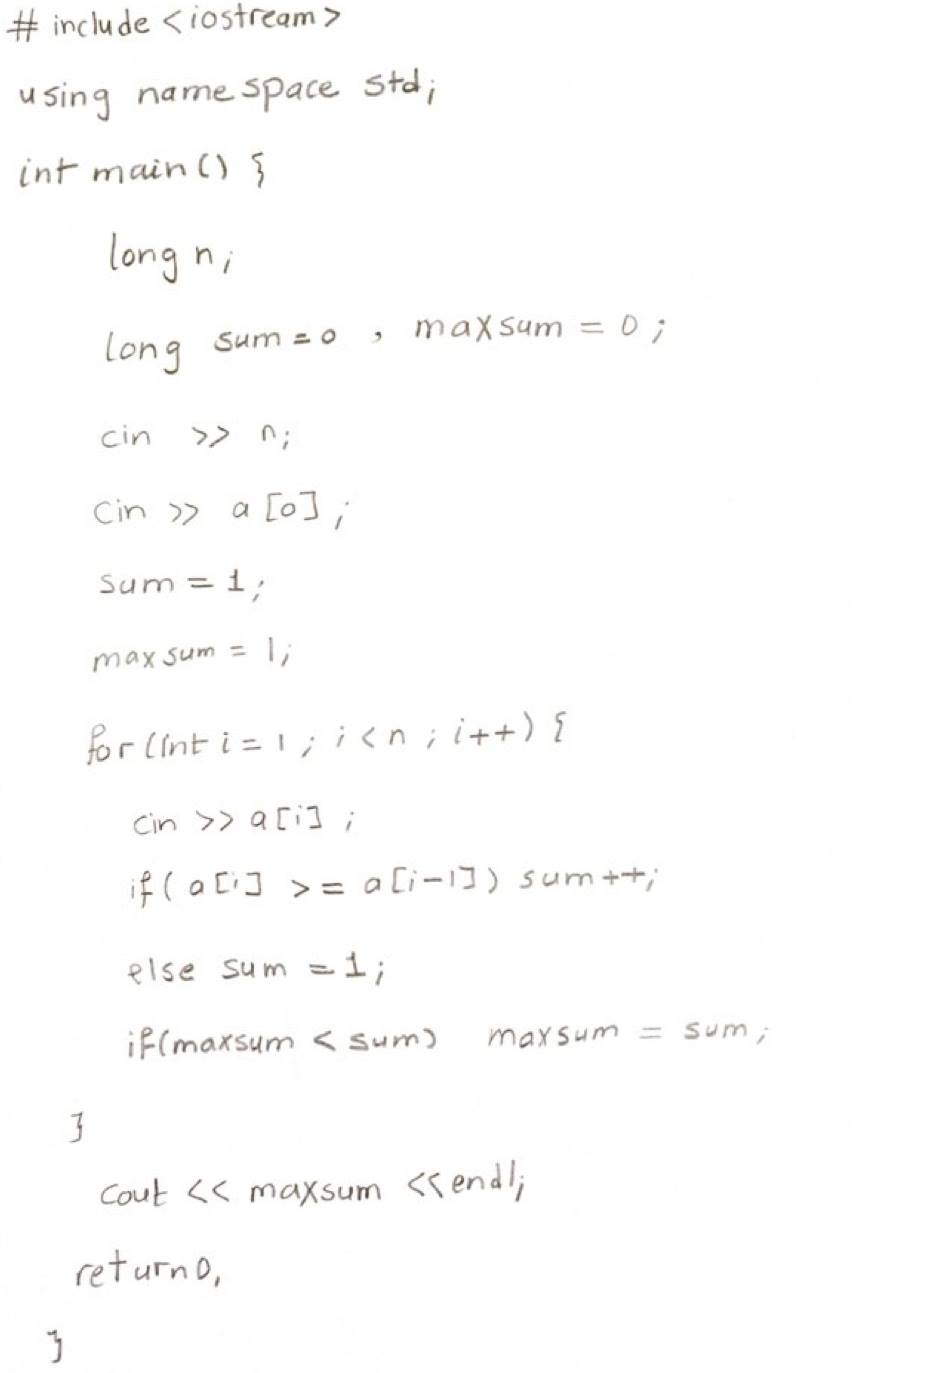 # include <iostream>
using namespace std;
int main() {
long n;
long sum=0 , maxsum = 0;
cin >> n;
cin >> a[0];
sum = 1;
maxsum = 1;
for(int i=1; i<n; i++) {
cin >> a[i];
if( a[i] >= a[i-1]) sum++;
else sum =1;
if(maxsum < sum) maxsum = sum;
}
cout << maxsum <<endl;
return 0,
}